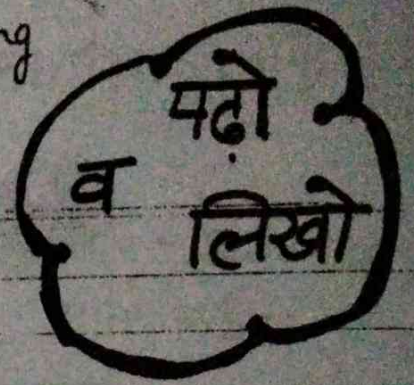 पढ़ो
व
लिखो